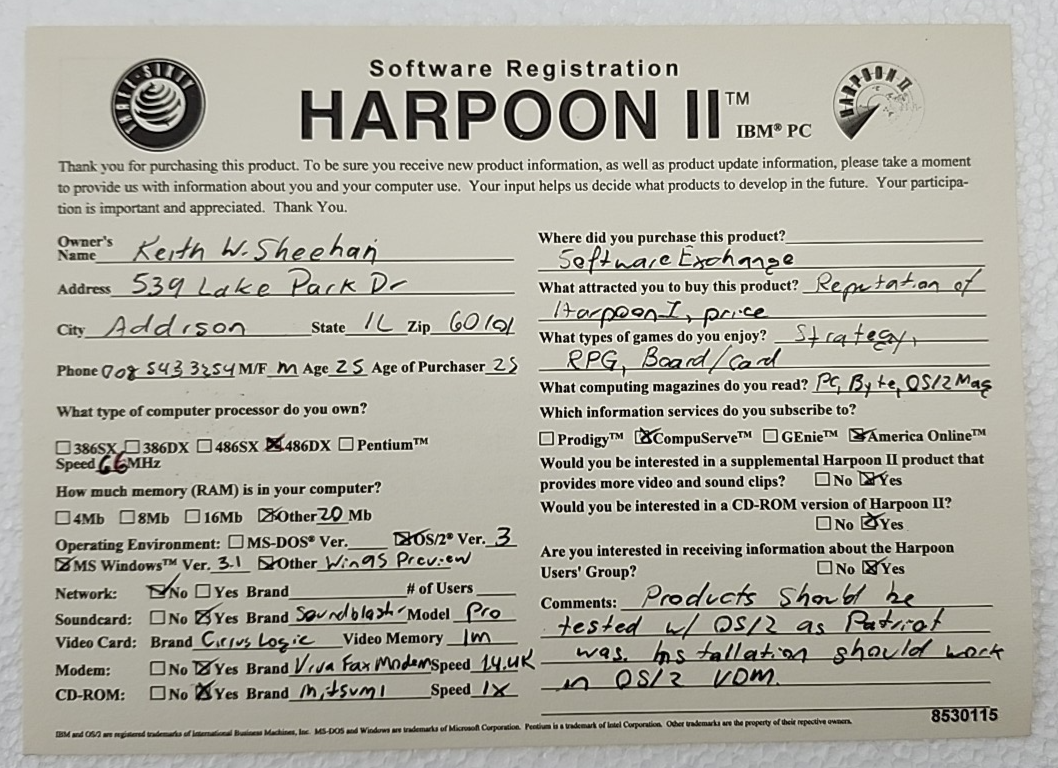 THREE-SIXTY
Software Registration
HARPOON II™
IBM® PC
HARPOON II
Thank you for purchasing this product. To be sure you receive new product information, as well as product update information, please take a moment
to provide us with information about you and your computer use. Your input helps us decide what products to develop in the future. Your participa-
tion is important and appreciated. Thank You.
Owner's Name Keith W. Sheehan
Address 539 Lake Park Dr
City Addison State IL Zip 60101
Phone 708 543 3254 M/F M Age 25 Age of Purchaser 25
What type of computer processor do you own?
☐ 386SX ☐ 386DX ☐ 486SX ☒ 486DX ☐ Pentium™
Speed 66 MHz
How much memory (RAM) is in your computer?
☐ 4Mb ☐ 8Mb ☐ 16Mb ☒ Other 20 Mb
Operating Environment: ☐ MS-DOS® Ver. ____ ☒ OS/2® Ver. 3
☒ MS Windows™ Ver. 3.1 ☒ Other Win95 Preview
Network: ☒ No ☐ Yes Brand ____ # of Users ____
Soundcard: ☐ No ☒ Yes Brand Soundblaster Model Pro
Video Card: Brand Cirrus Logic Video Memory 1m
Modem: ☐ No ☒ Yes Brand Viva Fax Modem Speed 14.4K
CD-ROM: ☐ No ☒ Yes Brand Mitsumi Speed 1x
Where did you purchase this product?
Software Exchange
What attracted you to buy this product? Reputation of
Harpoon I, price
What types of games do you enjoy? Strategy,
RPG, Board/Card
What computing magazines do you read? PC, Byte, OS/2 Mag
Which information services do you subscribe to?
☐ Prodigy™ ☒ CompuServe™ ☐ GEnie™ ☒ America Online™
Would you be interested in a supplemental Harpoon II product that
provides more video and sound clips? ☐ No ☒ Yes
Would you be interested in a CD-ROM version of Harpoon II?
☐ No ☒ Yes
Are you interested in receiving information about the Harpoon
Users' Group? ☐ No ☒ Yes
Comments: Products should be
tested w/ OS/2 as Patriot
was. Installation should work
in OS/2 VDM.
8530115
IBM and OS/2 are registered trademarks of International Business Machines, Inc. MS-DOS and Windows are trademarks of Microsoft Corporation. Pentium is a trademark of Intel Corporation. Other trademarks are the property of their repective owners.